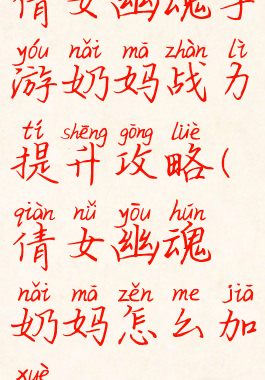 倩女幽魂手
yóu nǎi mā zhàn lì
游奶妈战力
tí shēng gōng lüè
提升攻略(
qiàn nǚ yōu hún
倩女幽魂
nǎi mā zěn me jiā
奶妈怎么加
xuè